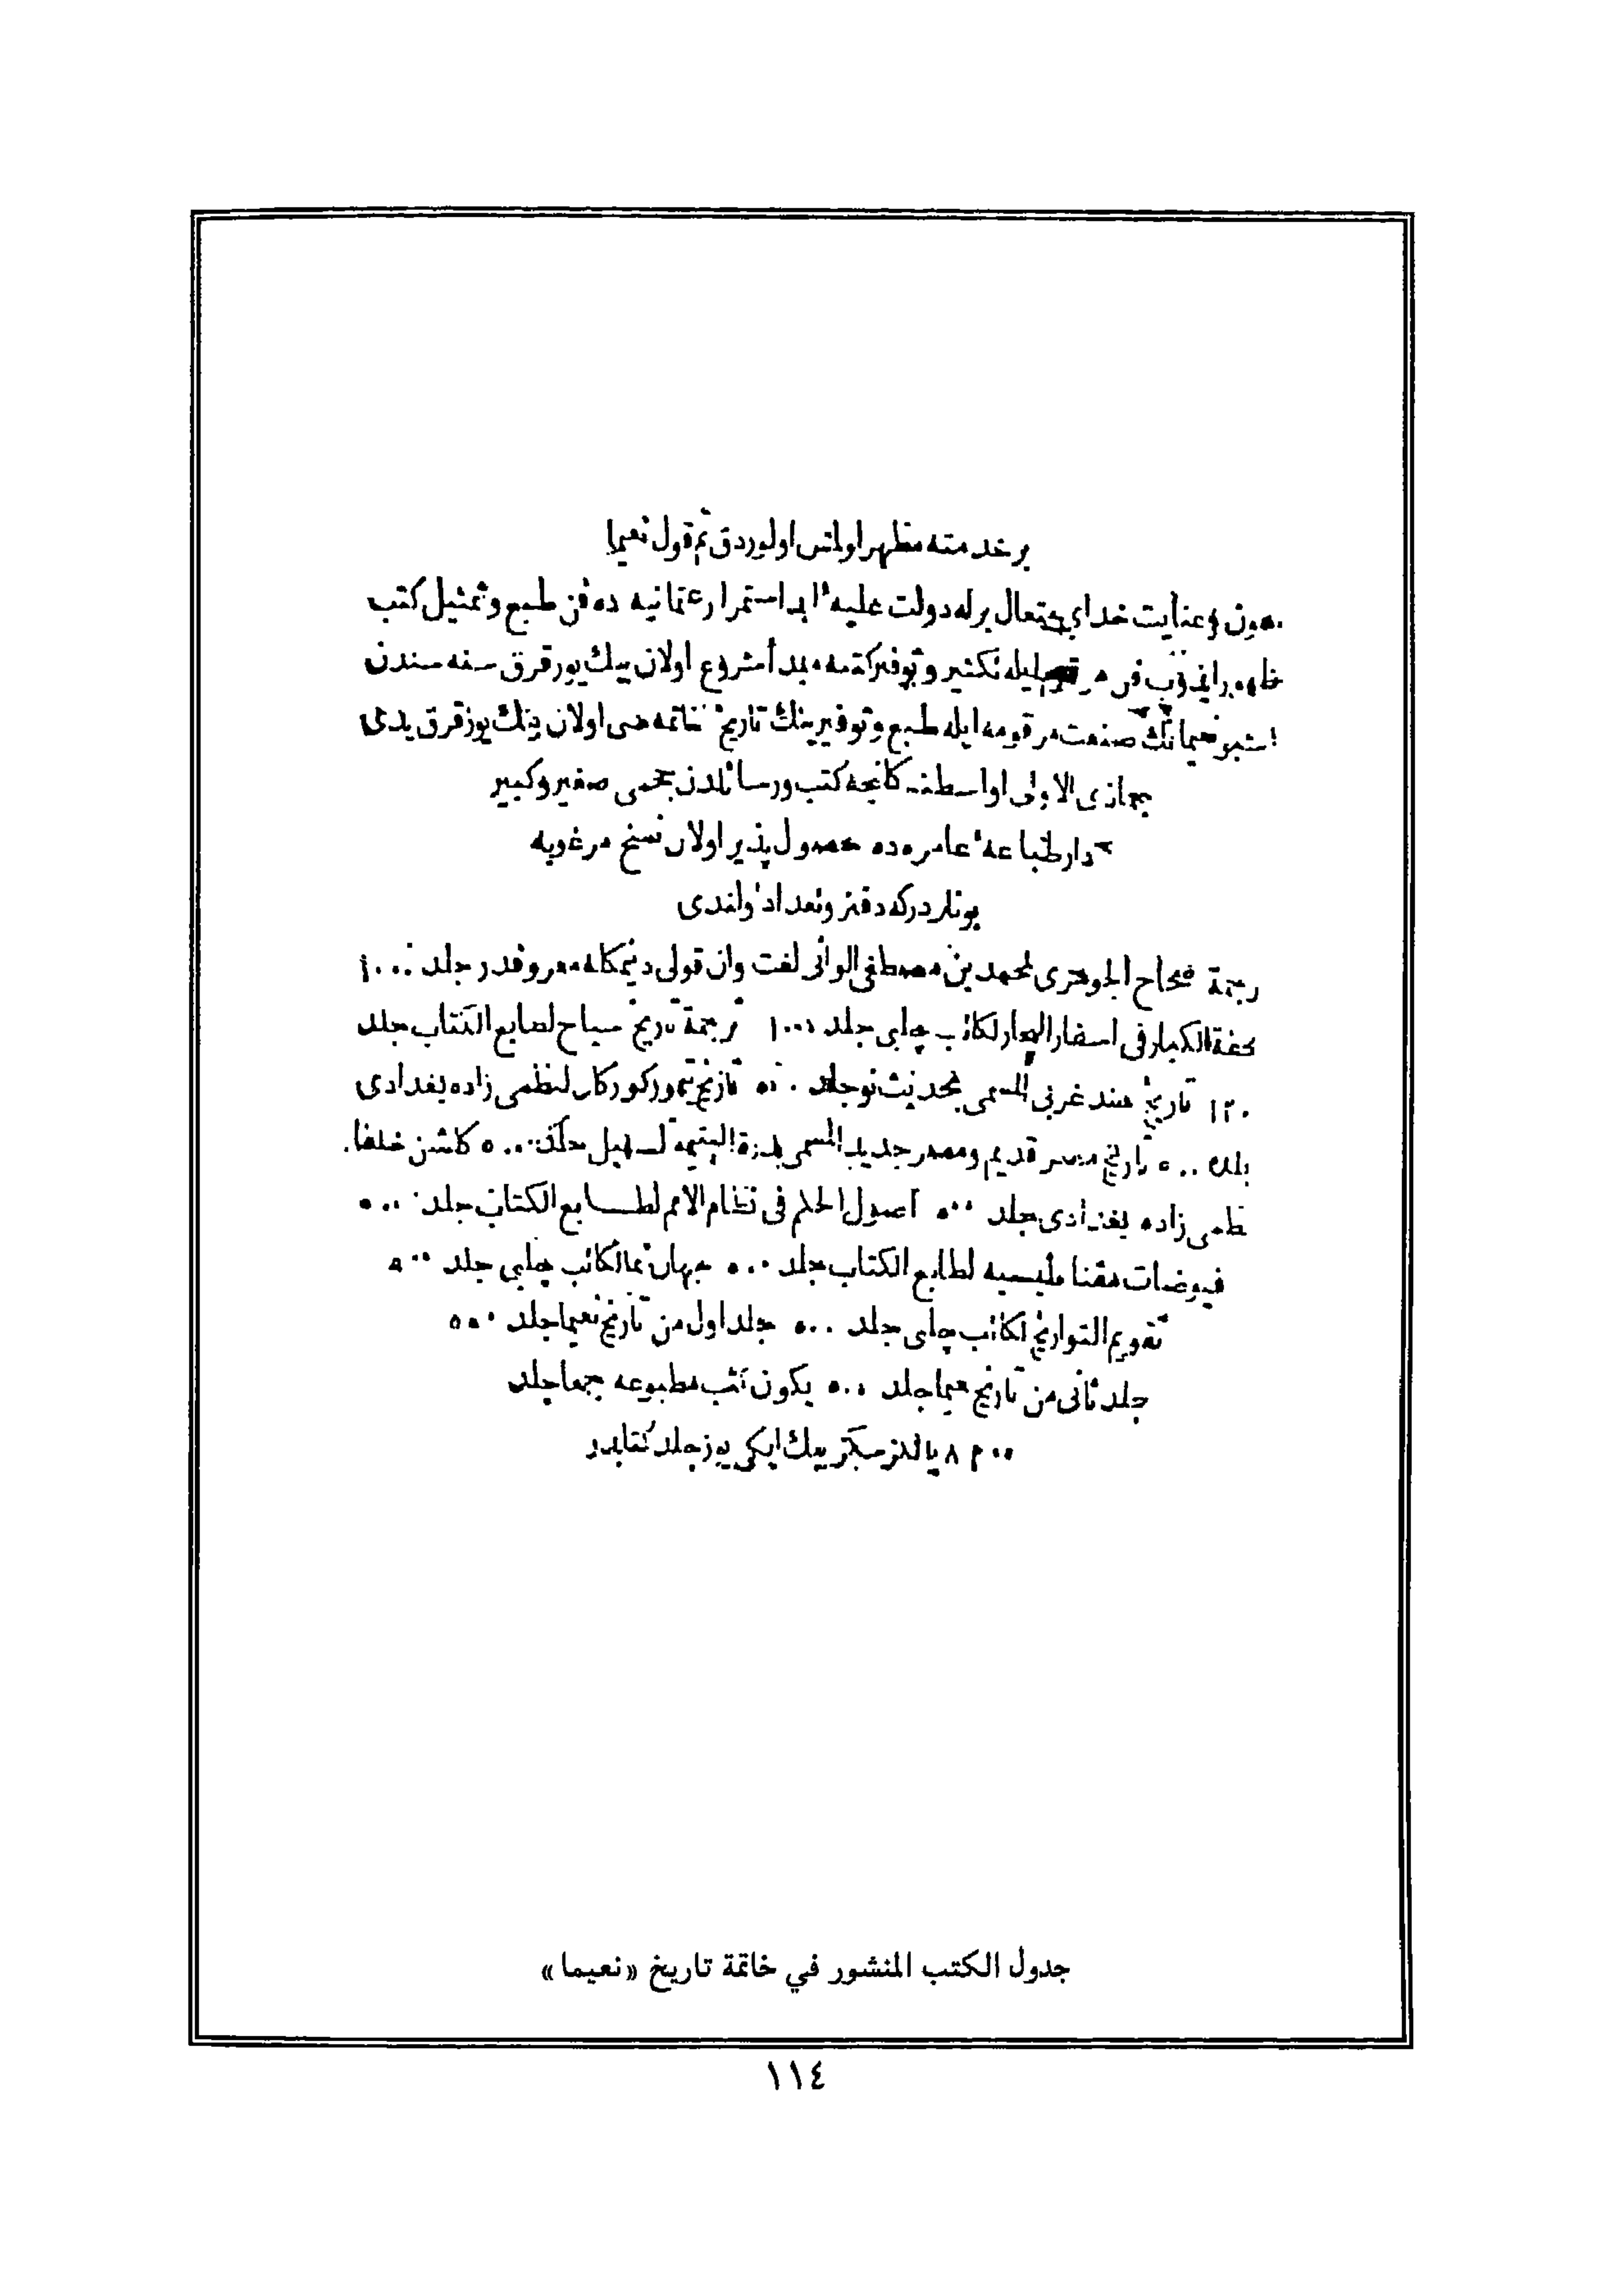 بر خدمته مظهر اولمش اولوردق تم قول نعيما
وعنايت خداى متعال برله دولت عليه ابد استمرار عثمانيه ده فن طبع وتمثيل كتب
تكثير وتوفير كتبه مبدأ مشروع اولان بيك يوز قرق سنه سندن
صنعت مرقومه ايله طبع وتوفيرينك تاريخ ختامه سى اولان بيك يوز قرق يدى
جمازى الاولى اواسطنه كلنجه كتب ورسائلدن حجمى صغير وكبير
دار طباعهٔ عامره ده حصول پذير اولان نسخ مرغوبه
بونلردركه دفتر وتعداد اولندى
صحاح الجوهرى لمحمد بن مصطفى الوانى لغت وان قولى ديمكله معروفدر جلد ١٠٠٠
تحفة الكبار فى اسفار البحار لكاتب چلبى جلد ١٠٠٠ ترجمة تاريخ سياح لصابع الكتاب جلد
١٢٠٠ تاريخ هند غربى المسمى بحديث نو جلد ٥٠٠ تاريخ تيمور كوركان لنظمى زاده بغدادى
جلد ٥٠٠ تاريخ مصر قديم ومصر جديد المسمى بدرة اليتيمة لسهيل جلد ٥٠٠ كلشن خلفا
نظمى زاده بغدادى جلد ٥٠٠ اصول الحكم فى نظام الامم لطابع الكتاب جلد ٥٠٠
فيوضات مقناطيسيه لطابع الكتاب جلد ٥٠٠ جهان نما لكاتب چلبى جلد ٥٠٠
تقويم التواريخ لكاتب چلبى جلد ٥٠٠ جلد اول من تاريخ نعيما جلد ٥٠٠
جلد ثانى من تاريخ نعيما جلد ٥٠٠ يكون كتب مطبوعه جمعا جلد
يالكز سكز بيك ايكى يوز جلد كتابدر
جدول الكتب المنشور في خاتمة تاريخ «نعيما»
١١٤